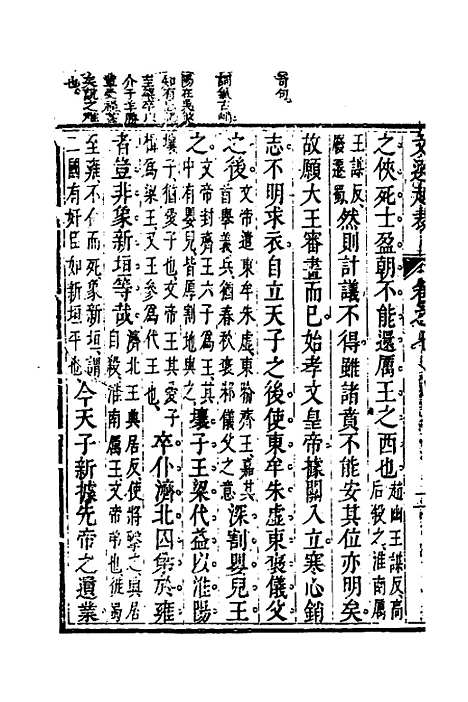 之俠死士盈朝不能還厲王之西也趙幽王謀反高后殺之淮南厲
王謀反廢遷蜀然則計議不得雖諸賁不能安其位亦明矣
故願大王審畫而已始孝文皇帝據關入立寒心銷
志不明求衣自立天子之後使東牟朱虛東褒儀父
之後文帝遣東牟朱虛東喻齊王嘉其首舉義兵猶春秋褒邾儀父之意深割嬰兒王
之文帝封齊王六子為王其中有嬰兒皆厚割地與之壤子王梁代益以淮陽
壤子猶愛子也文帝王其愛子揖為梁王又王參為代王也卒仆濟北囚弟於雍
者豈非象新垣等哉濟北王興居反使將擊之興居自殺淮南厲王文帝弟也徙蜀
至雍不食而死象新垣謂二國有奸臣如新垣平也今天子新據先帝之遺業
奇句
詞氣古峭